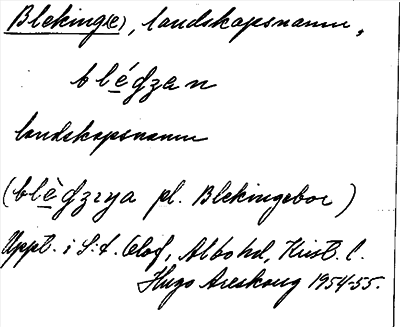 Bleking(e), landskapsnamn,
blédzan
landskapsnamn
(blèdzɪya pl. Blekingebor)
Uppt. i S:t Olof, Albo hd, Krist. l.
Hugo Areskoug 1954-55.